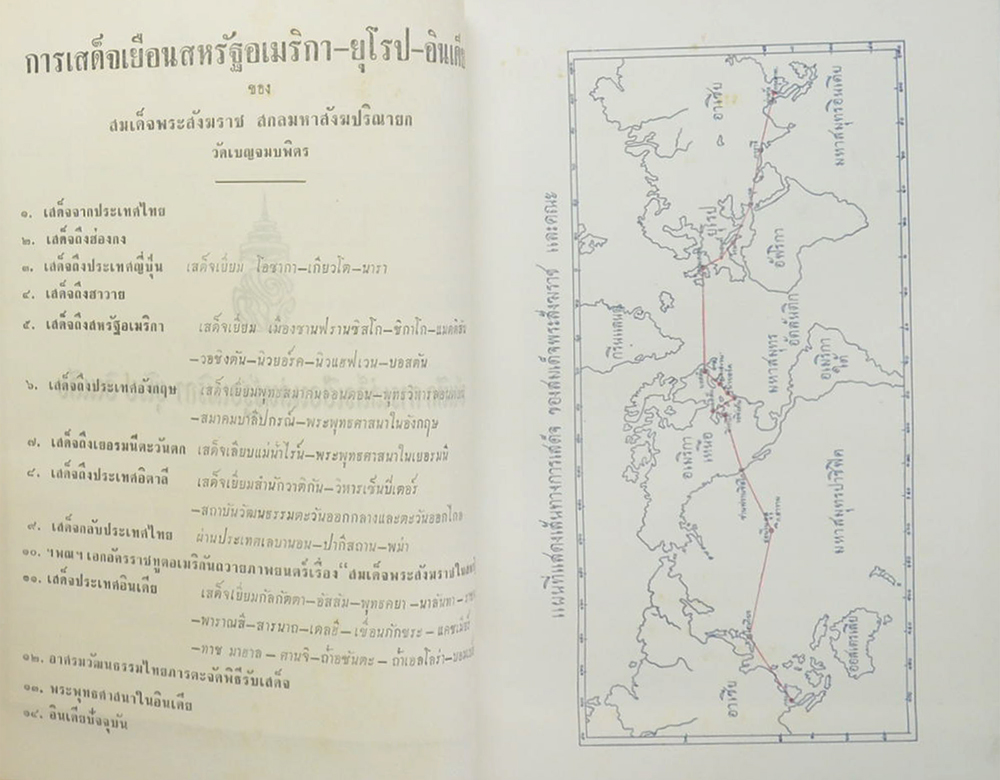 การเสด็จเยือนสหรัฐอเมริกา-ยุโรป-อินเดีย
ของ
สมเด็จพระสังฆราช สกลมหาสังฆปริณายก
วัดเบญจมบพิตร
๑. เสด็จจากประเทศไทย
๒. เสด็จถึงฮ่องกง
๓. เสด็จถึงประเทศญี่ปุ่น เสด็จเยี่ยม โอซากา-เกียวโต-นารา
๔. เสด็จถึงฮาวาย
๕. เสด็จถึงสหรัฐอเมริกา เสด็จเยี่ยม เมืองซานฟรานซิสโก-ชิคาโก-
-วอชิงตัน-นิวยอร์ค-นิวแฮฟเวน-บอสตัน
๖. เสด็จถึงประเทศอังกฤษ เสด็จเยี่ยมพุทธสมาคมลอนดอน-พุทธวิหารลอนดอน
-สมาคมบาลีปกรณ์-พระพุทธศาสนาในอังกฤษ
๗. เสด็จถึงเยอรมนีตะวันตก เสด็จเลียบแม่น้ำไรน์-พระพุทธศาสนาในเยอรมนี
๘. เสด็จถึงประเทศอิตาลี เสด็จเยี่ยมสำนักวาติกัน-วิหารเซ็นปีเตอร์
-สถาบันวัฒนธรรมตะวันออกกลางและตะวันออกไกล
๙. เสด็จกลับประเทศไทย ผ่านประเทศเลบานอน-ปากีสถาน-พม่า
๑๐. ฯพณฯ เอกอัครราชทูตอเมริกันถวายภาพยนตร์เรื่อง "สมเด็จพระสังฆราช
๑๑. เสด็จประเทศอินเดีย เสด็จเยี่ยมกัลกัตตา-อัสสัม-พุทธคยา-นาลันทา-
-พาราณสี-สารนาถ-เดลฮี-เขื่อนภักขระ-แคชเมียร์
-ทาช มาฮาล-ศานจิ-ถ้ำอชันตะ-ถ้ำเอลโอร่า-
๑๒. อาศรมวัฒนธรรมไทยภารตะจัดพิธีรับเสด็จ
๑๓. พระพุทธศาสนาในอินเดีย
๑๔. อินเดียปัจจุบัน
แผนที่แสดงเส้นทางการเสด็จ ของสมเด็จพระสังฆราช และคณะ
กรีนแลนด์
ยุโรป
อาเซีย
อัฟริกา
มหาสมุทรอินเดีย
อเมริกา
เหนือ
มหาสมุทร
อัตลันติก
อเมริกา
ใต้
มหาสมุทรปาซิฟิค
อาเซีย
ออสเตรเลีย